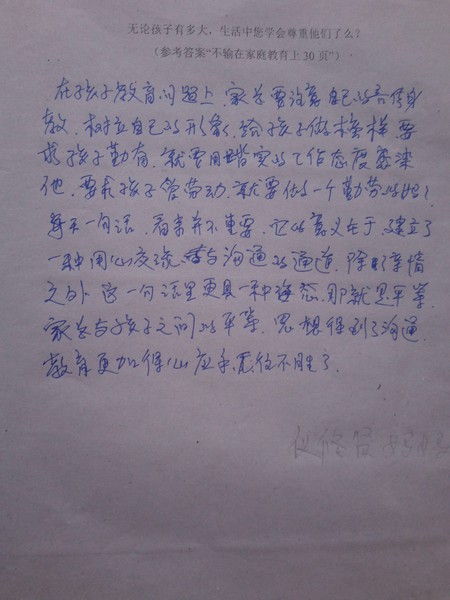 无论孩子有多大，生活中您学会尊重他们了么？
（参考答案“不输在家庭教育上30页”）
在孩子教育问题上，家长要注意自己的言传身
教，树立自己的形象，给孩子做榜样，要
求孩子勤奋，就要用踏实的工作态度感染
他，要求孩子爱劳动，就要做一个勤劳的妈？
每天一句话，内容并不重要，它的意义在于，建立了
一种用心交流与沟通的通道，除了亲情
之外，这一句话里更具一种姿态，那就是平等，
家长与孩子之间的平等，思想得到了沟通，
教育更加得心应手，无往不胜了。